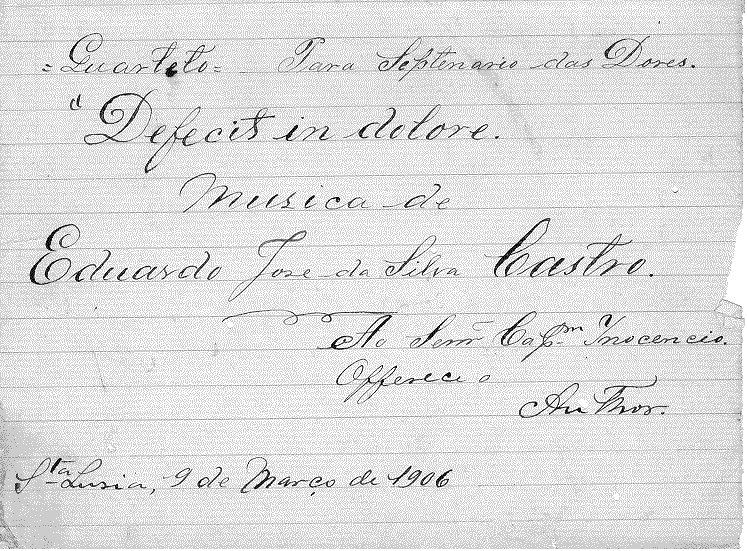 = Quarteto = Para Septenario das Dores.
"Defecit in dolore.
Musica de
Eduardo Jose da Silva Castro.
Ao Senr. Cap.m Inocencio.
Offerece o
Author.
Sta Lusia, 9 de Março de 1906